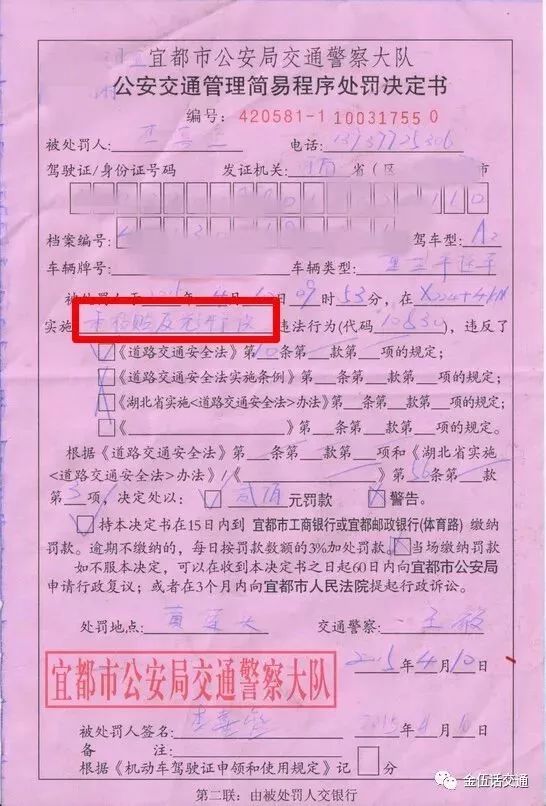 宜都市公安局交通警察大队
公安交通管理简易程序处罚决定书
编号：420581-1 10031755 0
被处罚人： 电话：
驾驶证/身份证号码 发证机关： 省（区 市
档案编号： 驾车型：A2
车辆牌号： 车辆类型：
被处罚人于2015年4月10日09时53分，在X024+4KM
实施未粘贴反光标识违法行为(代码 )，违反了
《道路交通安全法》第10条第 款第 项的规定；
《道路交通安全法实施条例》第 条第 款第 项的规定；
《湖北省实施<道路交通安全法>办法》第 条第 款第 项的规定；
《 》第 条第 款第 项的规定。
根据《道路交通安全法》第 条第 款第 项和《湖北省实施
<道路交通安全法>办法》/《 》第56条第 款
第3项，决定处以： 贰佰元罚款 警告。
持本决定书在15日内到 宜都市工商银行或宜都邮政银行(体育路) 缴纳
罚款。逾期不缴纳的，每日按罚款数额的3%加处罚款。 当场缴纳罚款
如不服本决定，可以在收到本决定书之日起60日内向宜都市公安局
申请行政复议；或者在3个月内向宜都市人民法院提起行政诉讼。
处罚地点： 交通警察：王敏
2015年4月10日
宜都市公安局交通警察大队
被处罚人签名： 2015年4月10日
备 注：
根据《机动车驾驶证申领和使用规定》记 分
第二联：由被处罚人交银行
金伍话交通